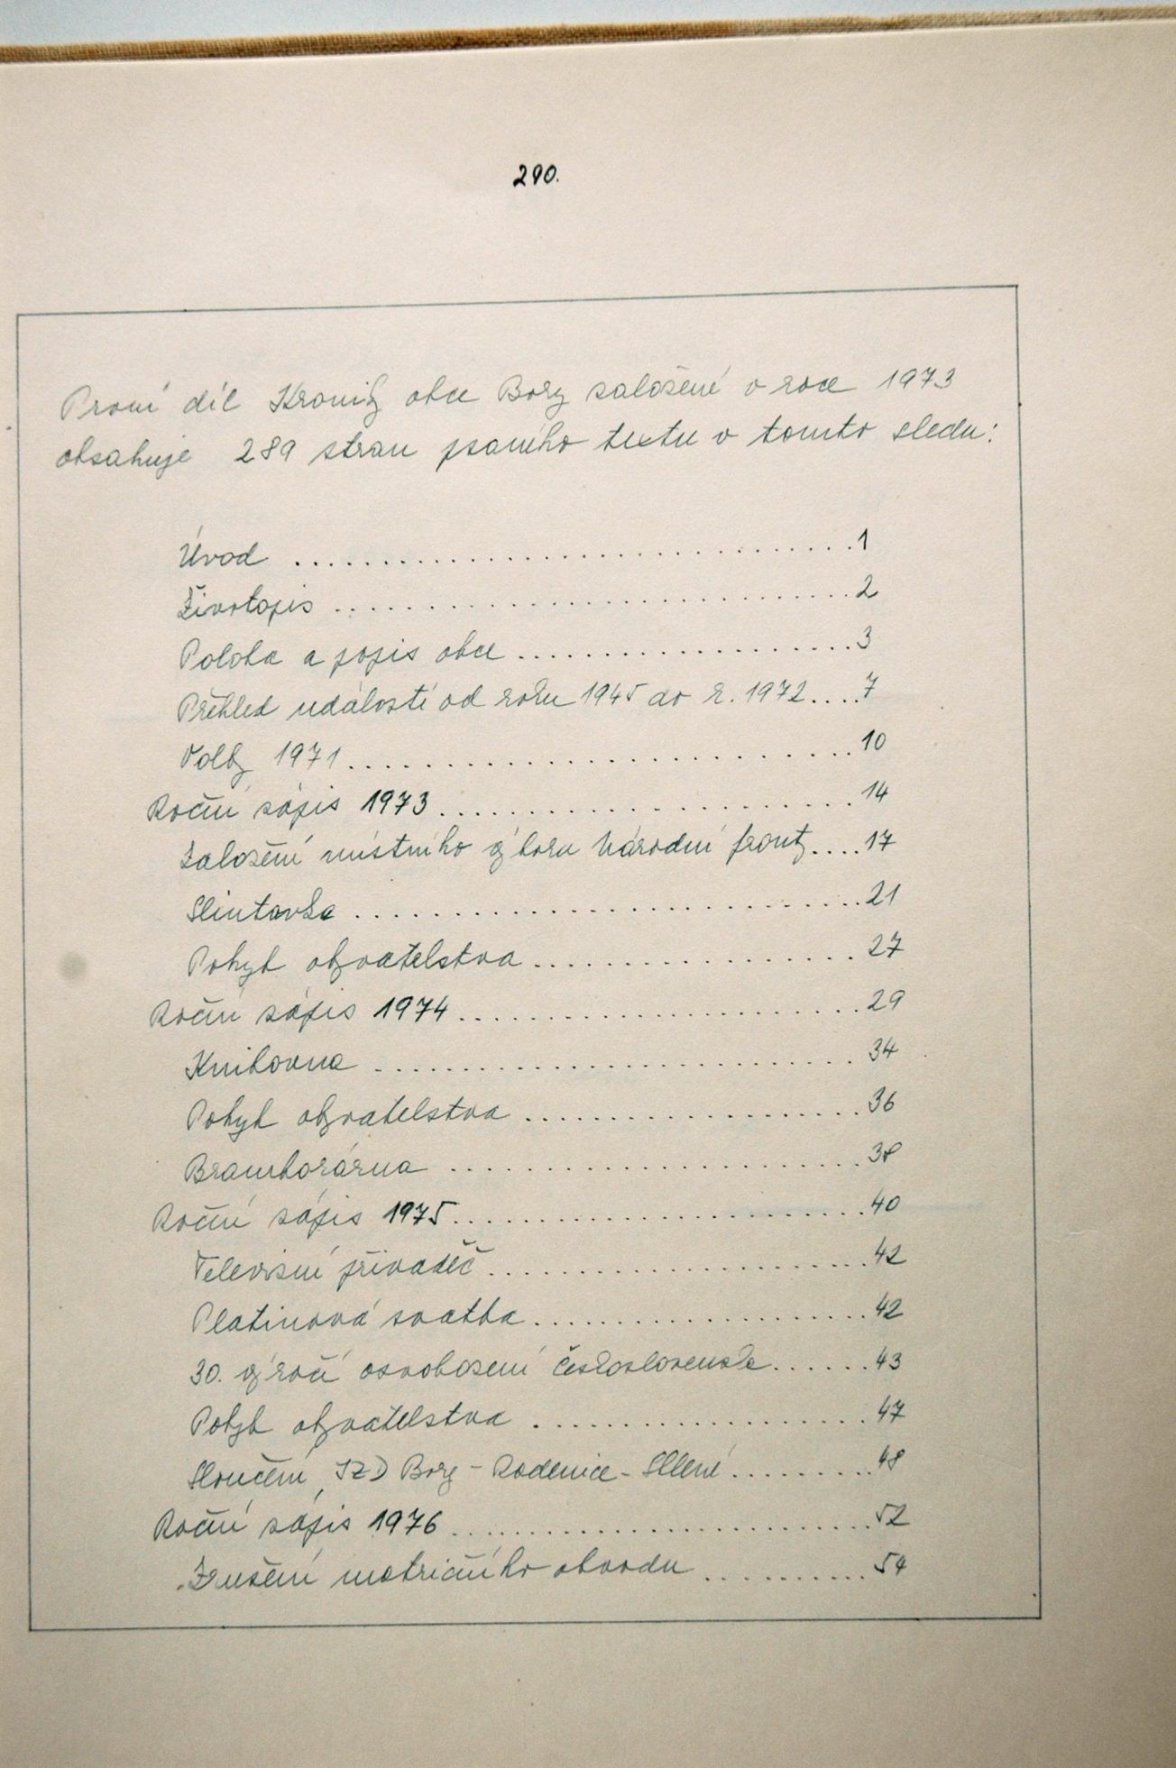 290.
První díl Kroniky obce Bory založené v roce 1973
obsahuje 289 stran psaného textu v tomto sledu:
Úvod ................................ 1
Životopis .............................. 2
Poloha a popis obce ................... 3
Přehled událostí od roku 1945 do r. 1972 .... 7
Volby 1971 ............................. 10
Roční zápis 1973 ........................ 14
Založení místního výboru Národní fronty .... 17
Slintavka .............................. 21
Pohyb obyvatelstva ................... 27
Roční zápis 1974 ....................... 29
Knihovna ............................. 34
Pohyb obyvatelstva ................... 36
Bramborárna ........................ 38
Roční zápis 1975 ........................ 40
Televizní přivaděč ...................... 42
Platinová svatba ................... 42
30. výročí osvobození Československa ...... 43
Pohyb obyvatelstva ................... 47
Sloučení JZD Bory - Radenice - Sklené ......... 48
Roční zápis 1976 ........................ 52
Zrušení matričního obvodu .......... 54